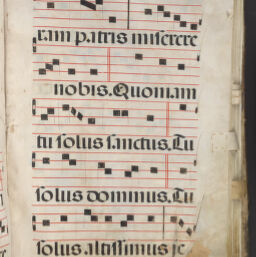 ram patris miserere
nobis. Quoniam
tu solus sanctus. Tu
solus dominus. Tu
solus altissimus ie